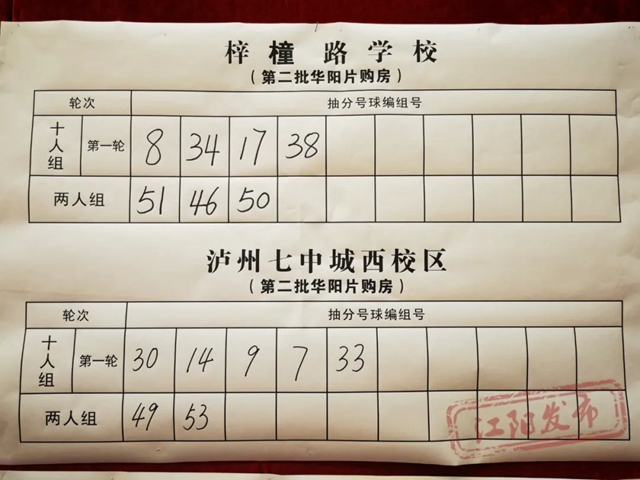 梓橦路学校
（第二批华阳片购房）
轮次 抽分号球编组号
十人组 第一轮 8 34 17 38
两人组 51 46 50
泸州七中城西校区
（第二批华阳片购房）
轮次 抽分号球编组号
十人组 第一轮 30 14 9 7 33
两人组 49 53
江阳发布